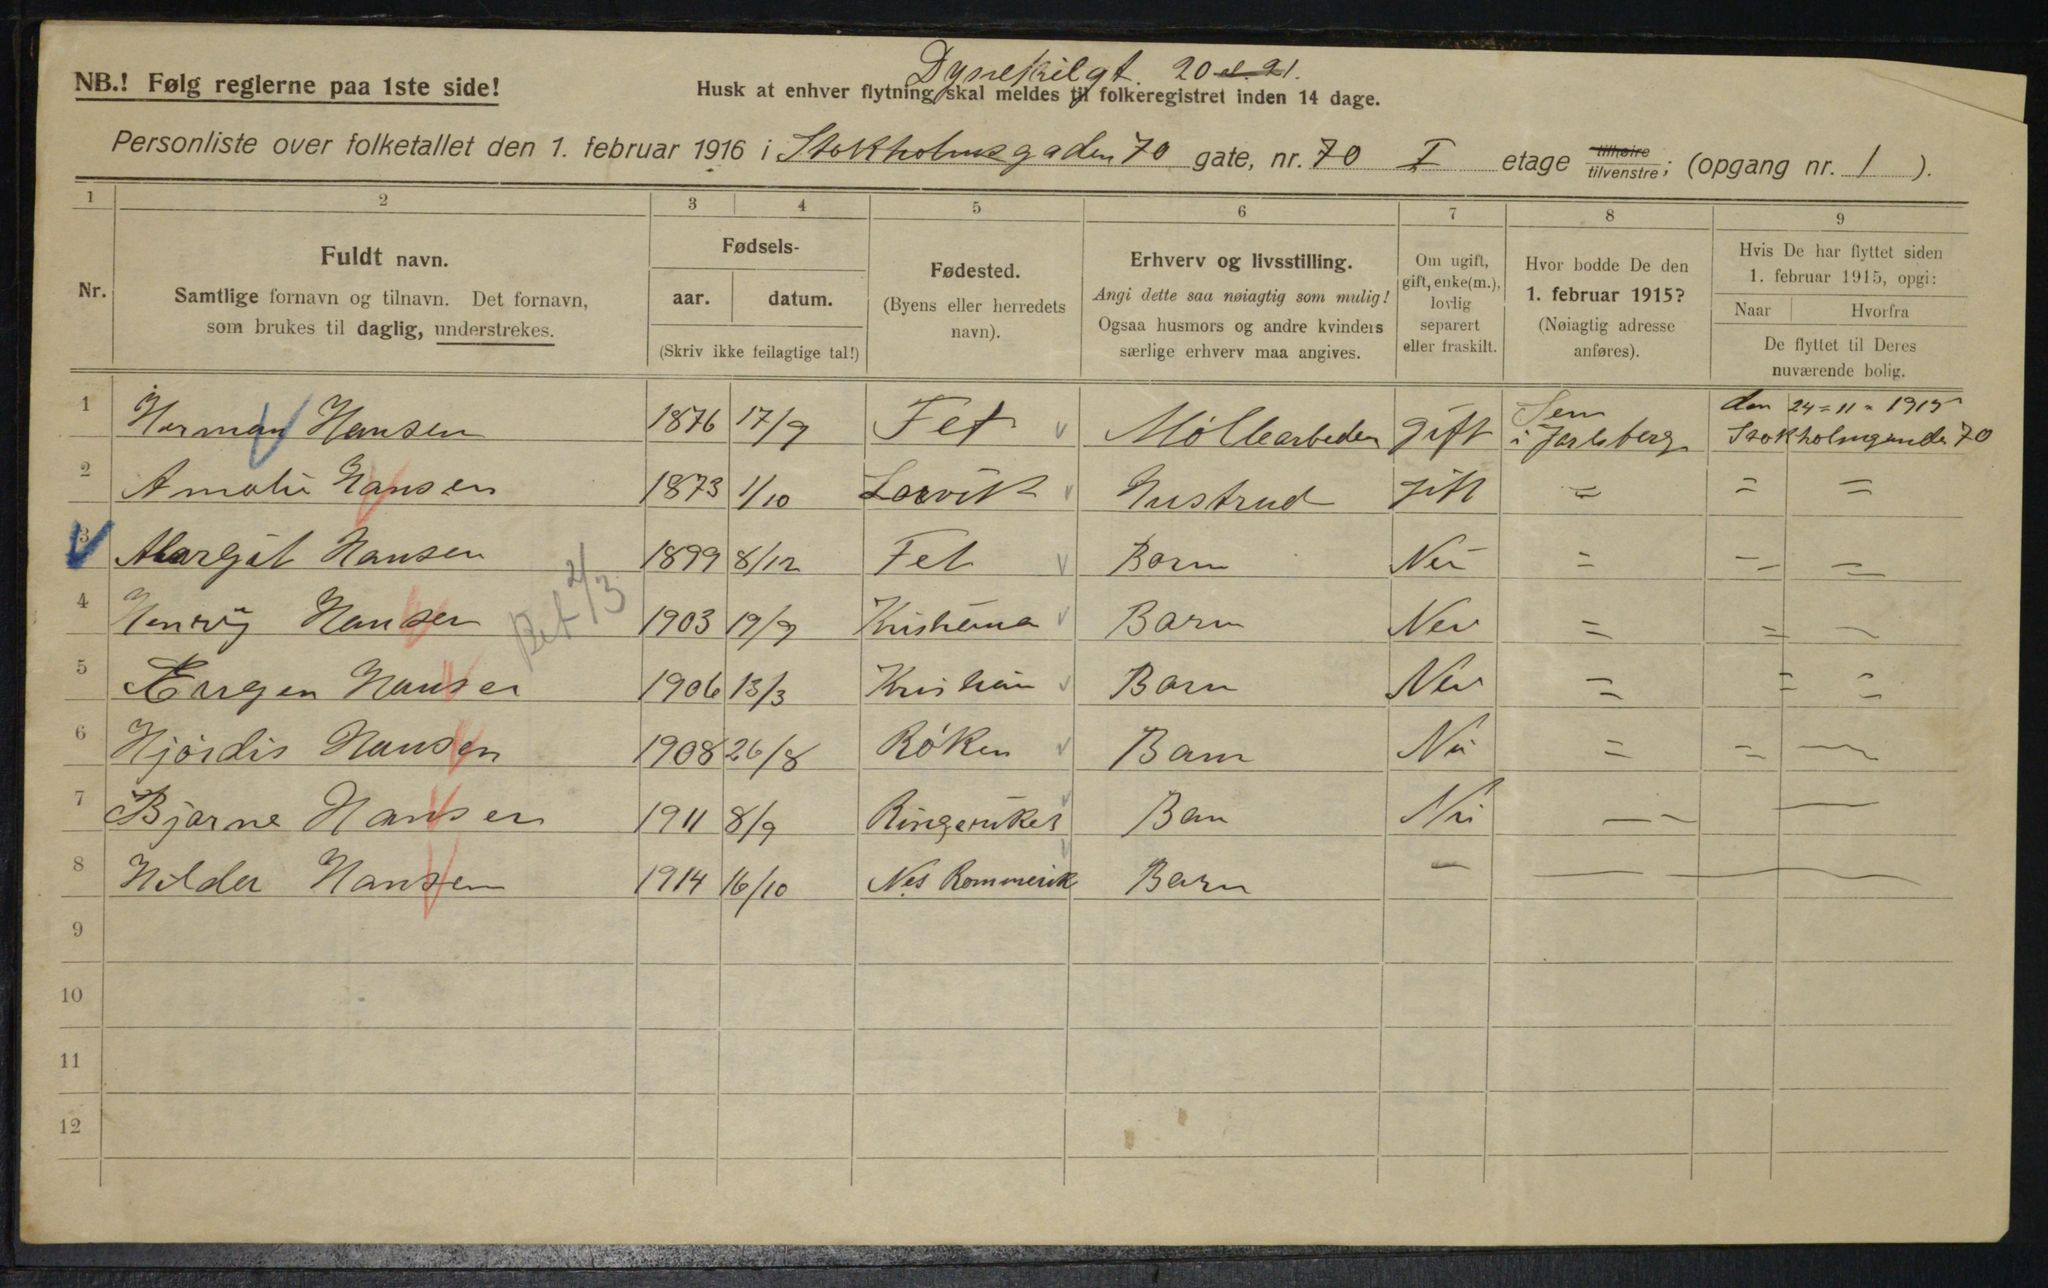 Dynekilgt. 20 el. 21.
NB.! Følg reglerne paa 1ste side!
Husk at enhver flytning skal meldes til folkeregistret inden 14 dage.
Personliste over folketallet den 1. februar 1916 i Stokholmsgaden 70 gate, nr. 70 I etage tilhøire/tilvenstre; (opgang nr. 1 ).
1 2 3 4 5 6 7 8 9
Nr.
Fuldt navn.
Samtlige fornavn og tilnavn. Det fornavn,
som brukes til daglig, understrekes.
Fødsels-
aar. datum.
(Skriv ikke feilagtige tal!)
Fødested.
(Byens eller herredets
navn).
Erhverv og livsstilling.
Angi dette saa nøiagtig som mulig!
Ogsaa husmors og andre kvinders
særlige erhverv maa angives.
Om ugift,
gift, enke(m.),
lovlig
separert
eller fraskilt.
Hvor bodde De den
1. februar 1915?
(Nøiagtig adresse
anføres).
Hvis De har flyttet siden
1. februar 1915, opgi:
Naar Hvorfra
De flyttet til Deres
nuværende bolig.
1 Herman Hansen 1876 17/9 Fet Møllearbeder gift Sem i Jarlsberg den 24=11=1915 Stokholmgaden 70
2 Amalie Hansen 1873 1/10 Larvik Hustrud gift = = =
3 Margit Hansen 1899 8/12 Fet Barn Nei = - =
4 Henry Hansen 1903 19/9 Kristiania Barn Nei = = -
5 Eugen Hansen 1906 13/3 Kristiania Barn Nei = = =
6 Hjørdis Hansen 1908 26/8 Røken Barn Nei = - -
7 Bjarne Hansen 1911 8/9 Ringerikes Barn Nei - - -
8 Hilder Hansen 1914 16/10 Nes Rommerik Barn - - -
2/3
9
10
11
12